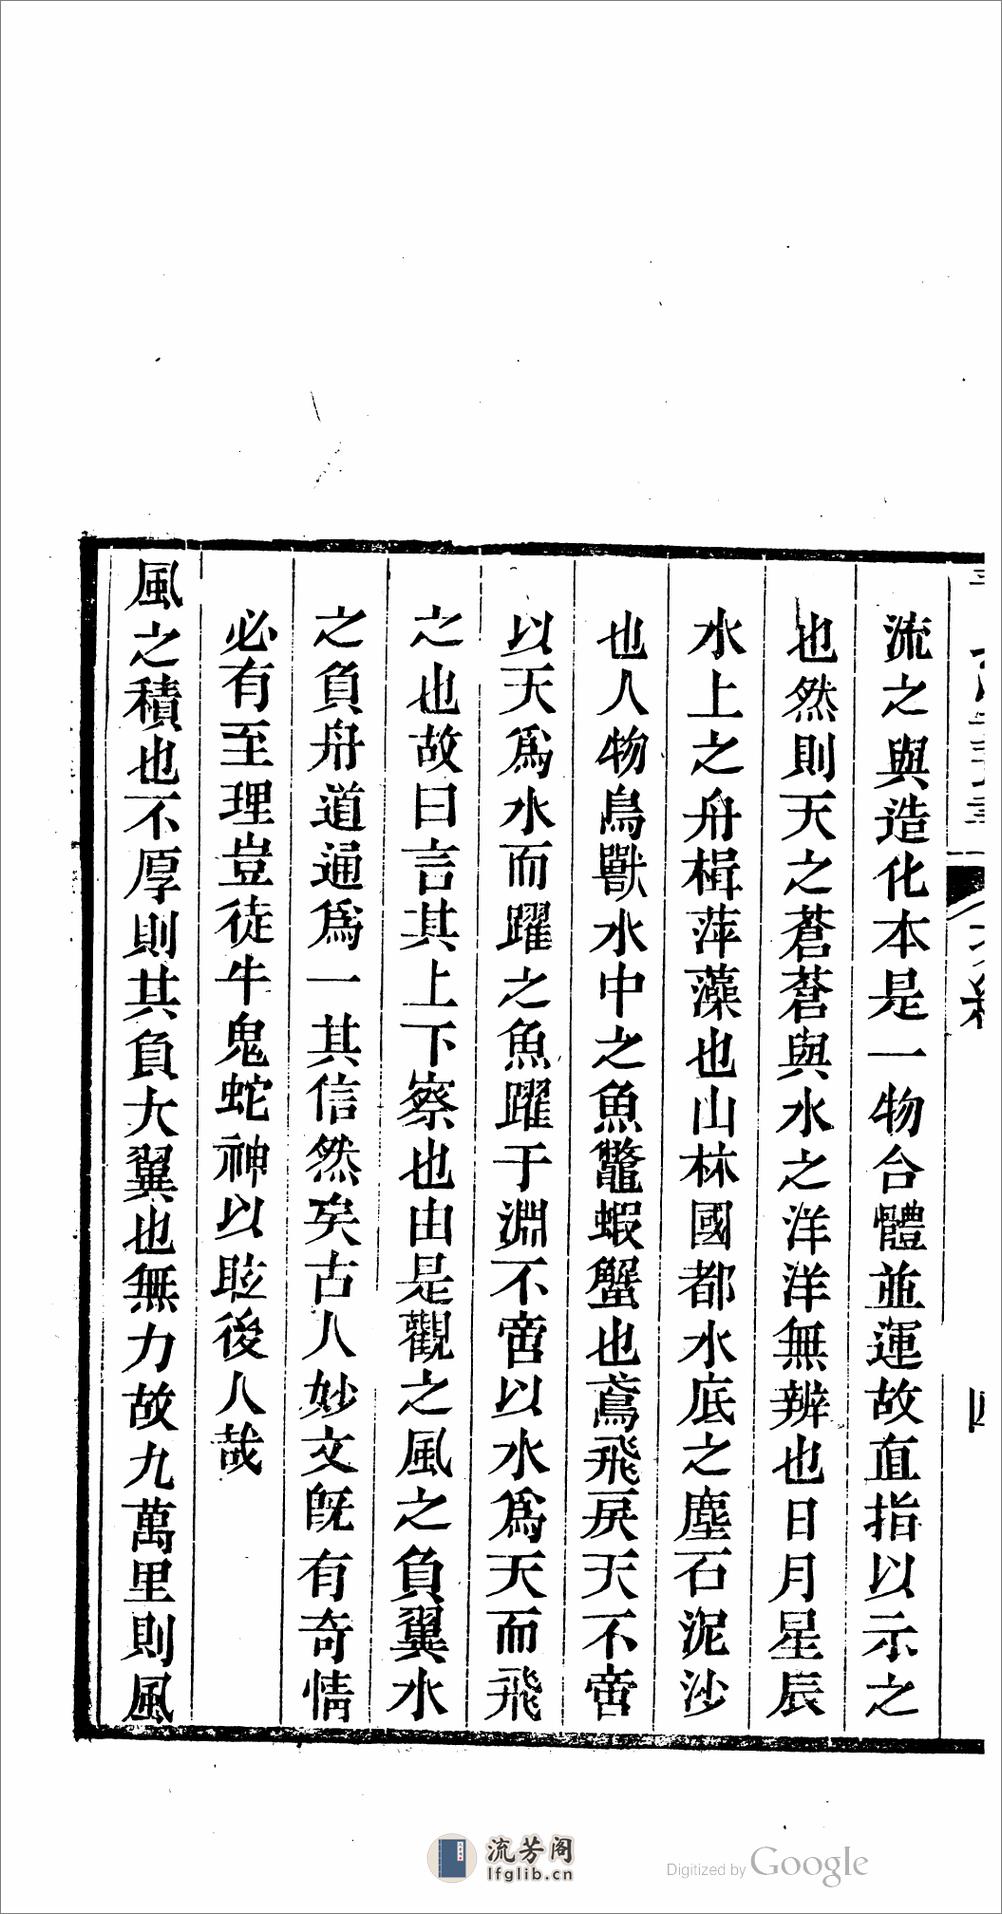 流之與造化本是一物合體並運故直指以示之
也然則天之蒼蒼與水之洋洋無辨也日月星辰
水上之舟楫萍藻也山林國都水底之塵石泥沙
也人物鳥獸水中之魚鼈蝦蟹也鳶飛戾天不啻
以天爲水而躍之魚躍于淵不啻以水爲天而飛
之也故曰言其上下察也由是觀之風之負翼水
之負舟道通爲一其信然矣古人妙文旣有奇情
必有至理豈徒牛鬼蛇神以眩後人哉
風之積也不厚則其負大翼也無力故九萬里則風
流芳阁
lfglib.cn
Digitized by Google